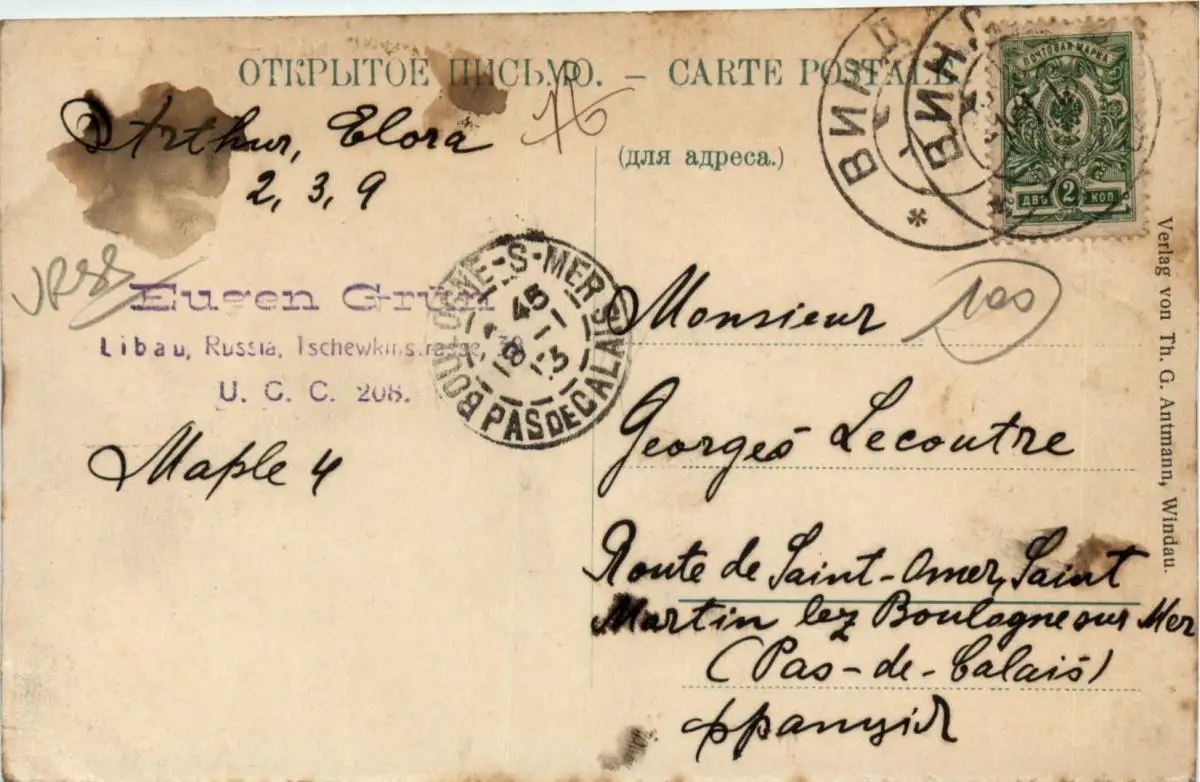 ОТКРЫТОЕ ПИСЬМО. – CARTE POSTALE
(для адреса.)
Arthur, Elora
2, 3, 9
Eugen Grün
Libau, Russia, Tschewkinstrasse, 38
U. C. C. 208.
Maple 4
BOULOGNE-S-MER
PAS DE CALAIS
ВИНД
ВИН
ПОЧТОВАЯ МАРКА
ДВѢ 2 КОП
100
Monsieur
Georges Lecoutre
Route de Saint-Omer, Saint
Martin lez Boulogne sur Mer
(Pas-de-Calais)
Франція
Verlag von Th. G. Antmann, Windau.